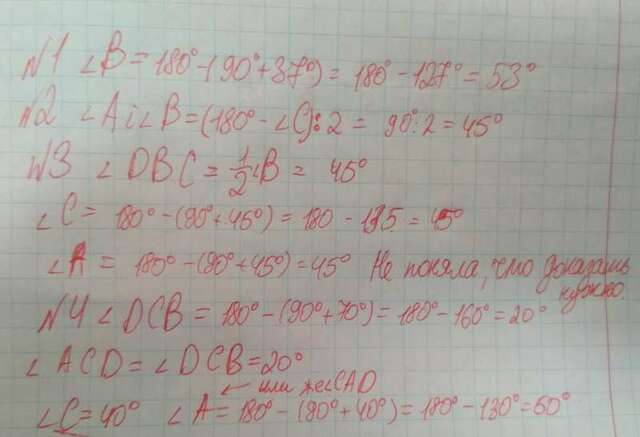 N1 ∠B = 180° - (90° + 37°) = 180° - 127° = 53°
N2 ∠A i ∠B = (180° - ∠C) : 2 = 90° : 2 = 45°
N3 ∠DBC = 1/2 ∠B = 45°
∠C = 180° - (90° + 45°) = 180 - 135 = 45°
∠A = 180° - (90° + 45°) = 45° Не поняла, что доказать нужно
N4 ∠DCB = 180° - (90° + 70°) = 180° - 160° = 20°
∠ACD = ∠DCB = 20°
← или же ∠CAD
∠C = 40° ∠A = 180° - (90° + 40°) = 180° - 130° = 60°